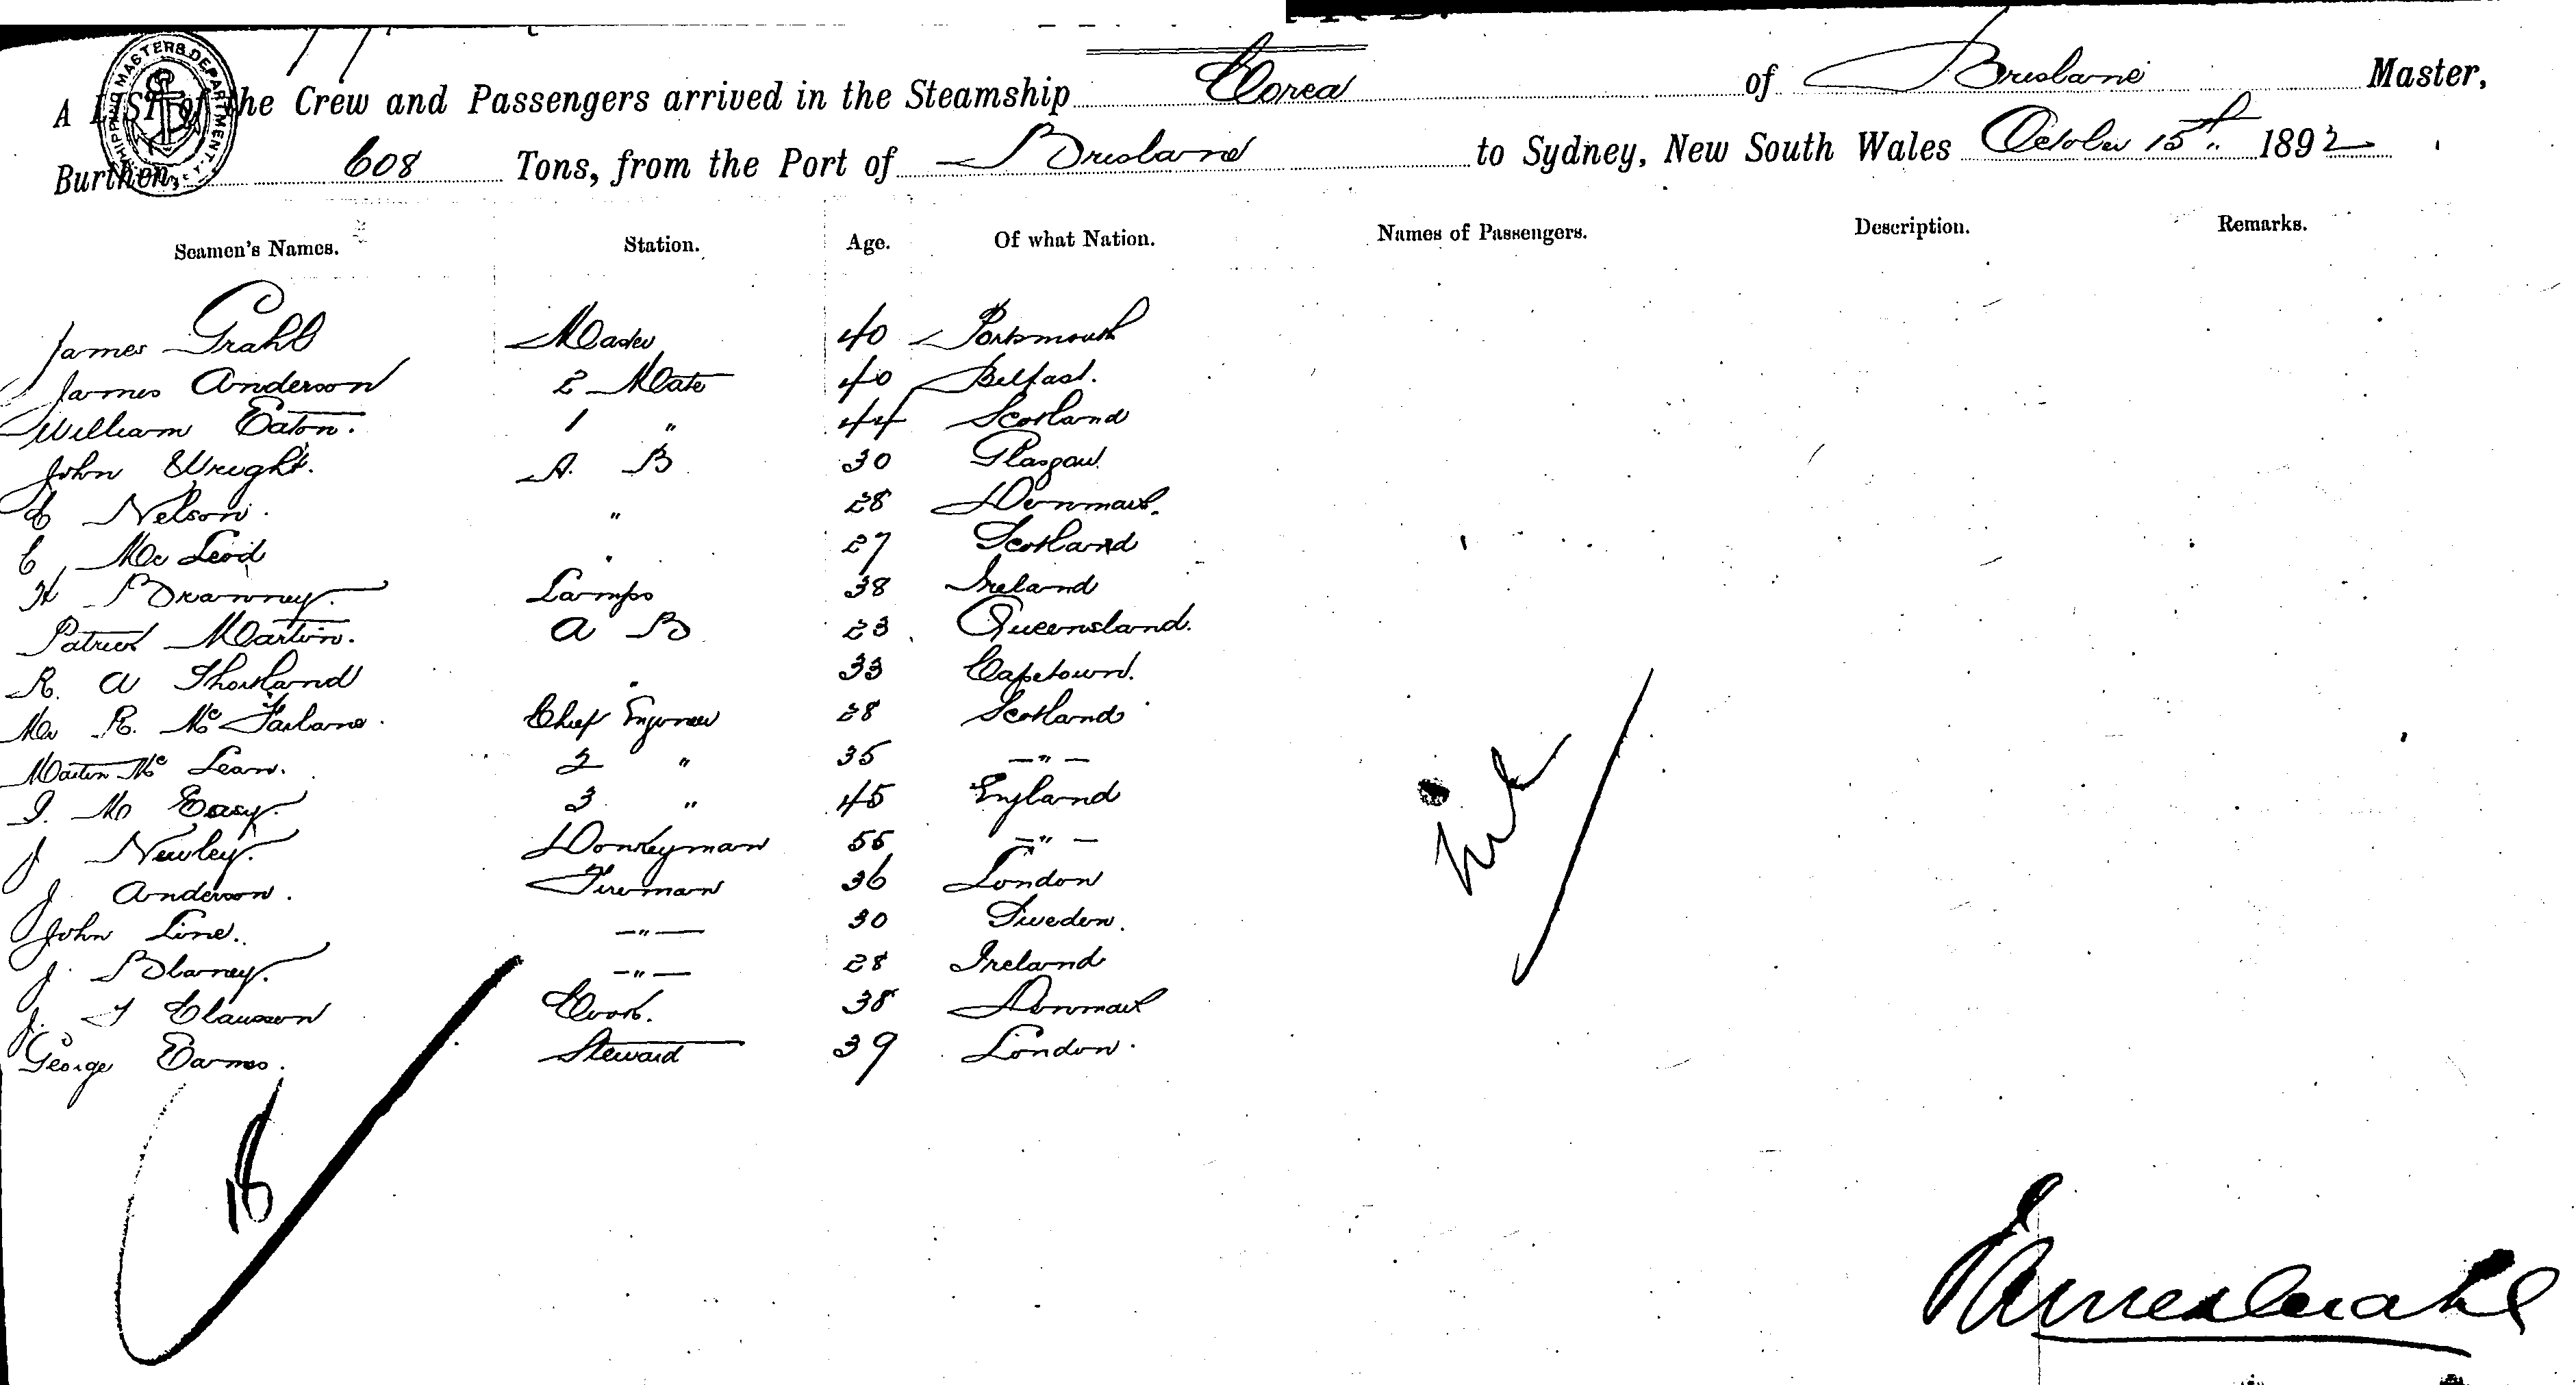 SHIPPING MASTERS DEPARTMENT
A LIST of the Crew and Passengers arrived in the Steamship Corea of Brisbane Master,
Burthen, 608 Tons, from the Port of Brisbane to Sydney, New South Wales October 15th 1892
Seamen's Names. Station. Age. Of what Nation. Names of Passengers. Description. Remarks.
James Grahl Master 40 Portsmouth
James Anderson 2 Mate 40 Belfast.
William Eaton. 1 " 44 Scotland
John Wright. A. B 30 Glasgow.
Nelson. " 28 Denmark.
C Mc Leod " 27 Scotland
H Branney. Lamps 38 Ireland
Patrick Martin. A B 23 Queensland.
R. A Thorland " 33 Capetown.
Mr R. Mc Farlane. Chief Engineer 28 Scotland
Martin Mc Lean. 2 " 35 - " -
I. Mc Easy. 3 " 45 England
J Newley. Donkeyman 55 - " -
J. Anderson. Fireman 36 London
John Line. - " - 30 Sweden.
J. Blaney. - " - 28 Ireland
J. F Clausson Cook. 38 Denmark
George Eames. Steward 39 London.
Nil
18
James Grahl